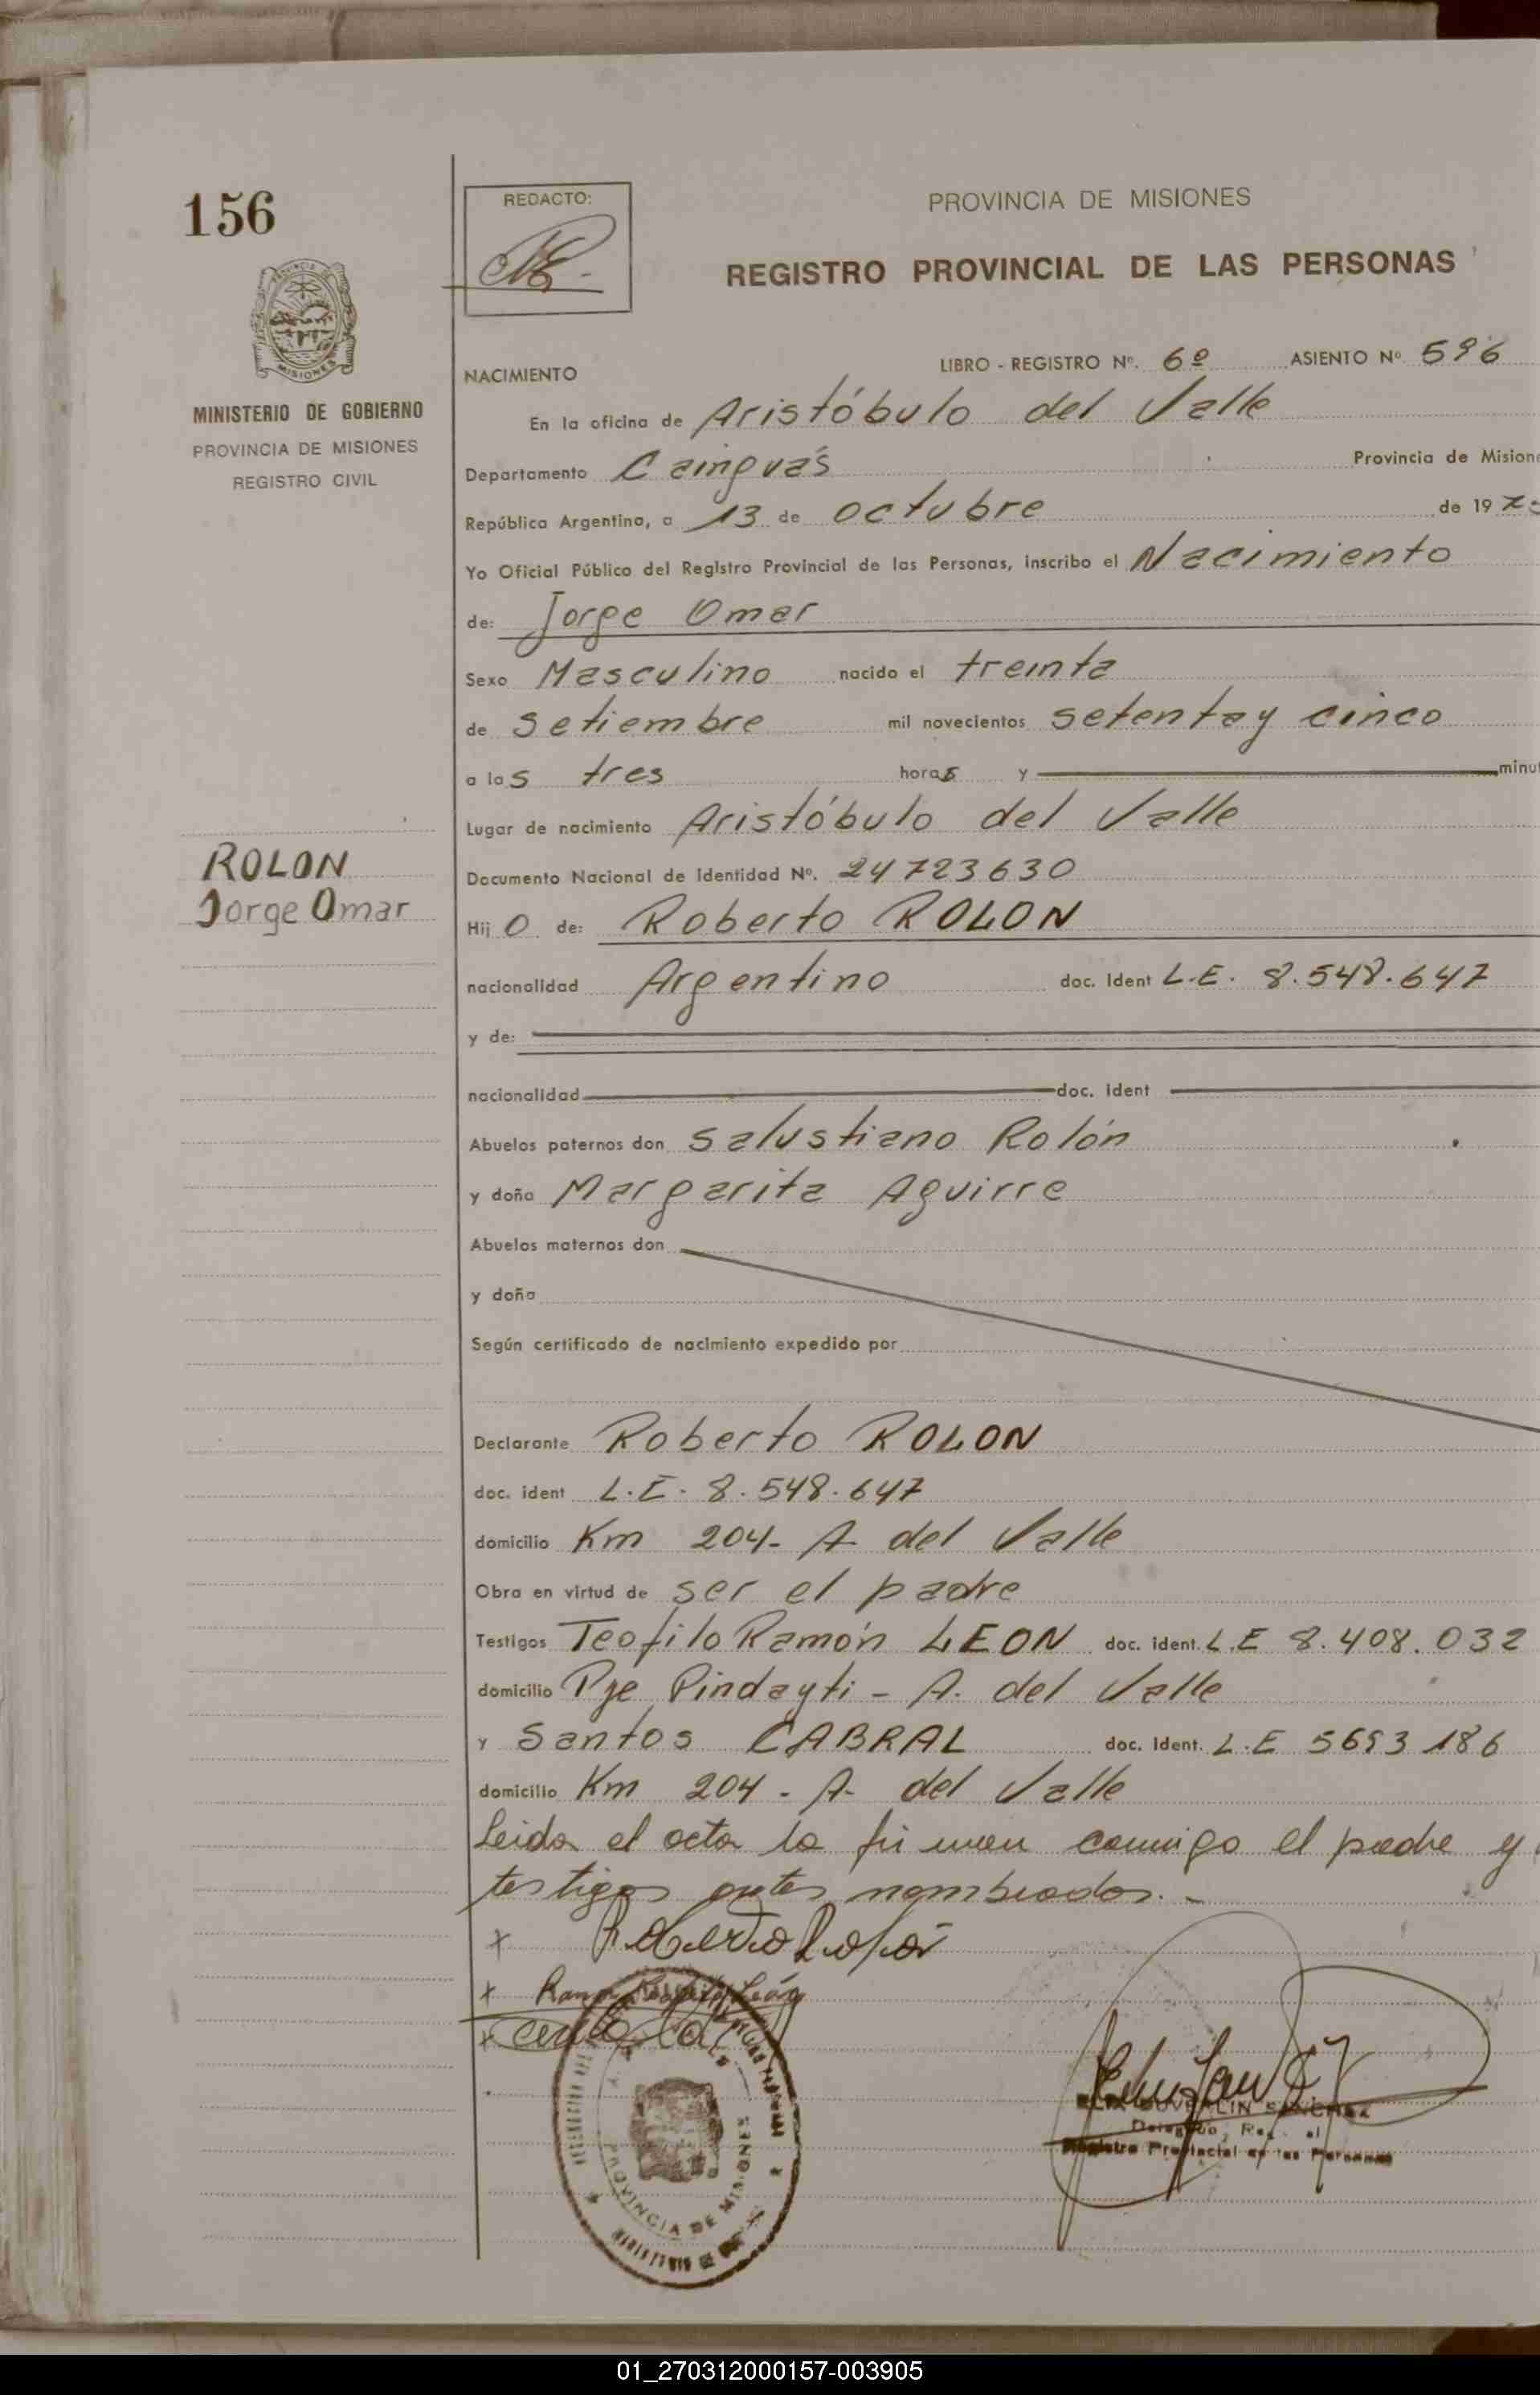 156
REDACTO:
PROVINCIA DE MISIONES
REGISTRO PROVINCIAL DE LAS PERSONAS
MISIONES
MINISTERIO DE GOBIERNO
PROVINCIA DE MISIONES
REGISTRO CIVIL
NACIMIENTO
LIBRO - REGISTRO Nº. 6º ASIENTO Nº 596
En la oficina de Aristóbulo del Valle
Departamento Cainguás Provincia de Mision
República Argentina, a 13 de octubre de 197
Yo Oficial Público del Registro Provincial de las Personas, inscribo el Nacimiento
de: Jorge Omar
Sexo Masculino nacido el treinta
de setiembre mil novecientos setenta y cinco
a las tres horas y minu
Lugar de nacimiento Aristóbulo del Valle
ROLON
Jorge Omar
Documento Nacional de Identidad Nº. 24723630
Hij O de: Roberto ROLON
nacionalidad Argentino doc. Ident L.E. 8.548.647
y de:
nacionalidad doc. Ident
Abuelos paternos don Salustiano Rolón
y doña Margarita Aguirre
Abuelos maternos don
y doña
Según certificado de nacimiento expedido por
Declarante Roberto ROLON
doc. ident L.E. 8.548.647
domicilio Km 204- A del Valle
Obra en virtud de ser el padre
Testigos Teofilo Ramón LEON doc. ident. L.E 8.408.032
domicilio Pje Pindayti - A. del Valle
y Santos CABRAL doc. Ident. L.E 5693186
domicilio Km 204 - A- del Valle
Leida el acta la firman conmigo el padre y
testigos antes nombrados. -
x Roberto Rolón
x Ramon León
x
PROVINCIA DE MISIONES
SANCHEZ
Registro Provincial de las Personas
01_270312000157-003905